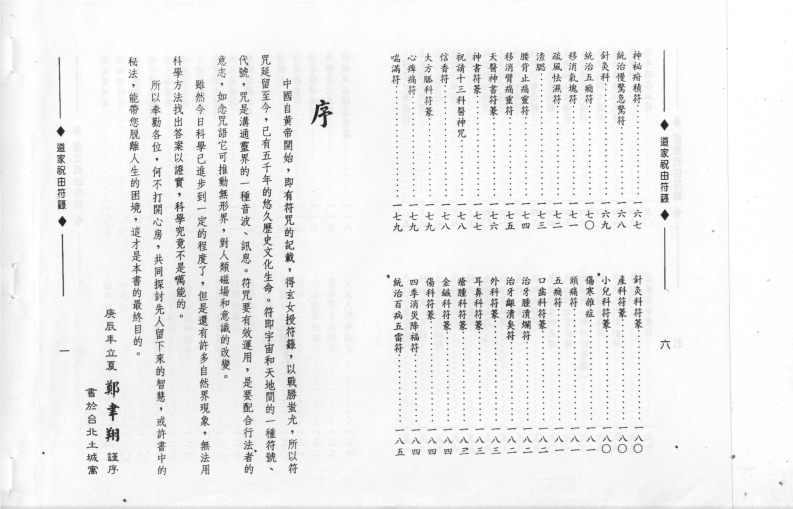 ◆道家祝由符籙◆
六
神祕疳積符‥‥一六七
統治慢驚急驚符‥‥一六八
針灸科‥‥一六九
統治五癇符‥‥一七〇
移消氣塊符‥‥一七一
疏風怯濕符‥‥一七二
渣腮‥‥一七三
腰背止痛靈符‥‥一七四
移消臂痛靈符‥‥一七五
天醫神書符篆‥‥一七六
神書符篆‥‥一七七
祝請十三科醫神咒‥‥一七八
信香符‥‥一七八
大方脈科符篆‥‥一七九
心痺痛符‥‥一七九
喘滿符‥‥一七九
針灸科符篆‥‥一八〇
產科符篆‥‥一八〇
小兒科符篆‥‥一八〇
傷寒雜症‥‥一八一
頭痛符‥‥一八一
五癇符‥‥一八一
口齒科符篆‥‥一八二
治牙腫潰爛符‥‥一八二
治牙齦潰臭符‥‥一八二
外科符篆‥‥一八三
耳鼻科符篆‥‥一八三
瘡腫科符篆‥‥一八三
金鍼科符篆‥‥一八四
傷科符篆‥‥一八四
四季消災降福符‥‥一八四
統治百病五雷符‥‥一八五
序
中國自黃帝開始，即有符咒的記載，得玄女授符籙，以戰勝蚩尤，所以符
咒延留至今，已有五千年的悠久歷史文化生命。符即宇宙和天地間的一種符號、
代號，咒是溝通靈界的一種音波、訊息。符咒要有效運用，是要配合行法者的
意志，如念咒語它可推動無形界，對人類磁場和意識的改變。
雖然今日科學已進步到一定的程度了，但是還有許多自然界現象，無法用
科學方法找出答案以證實，科學究竟不是萬能的。
所以奉勸各位，何不打開心房，共同探討先人留下來的智慧，或許書中的
秘法，能帶您脫離人生的困境，這才是本書的最終目的。
庚辰年立夏 鄭聿翔 謹序
書於台北土城寓
◆道家祝由符籙◆
一